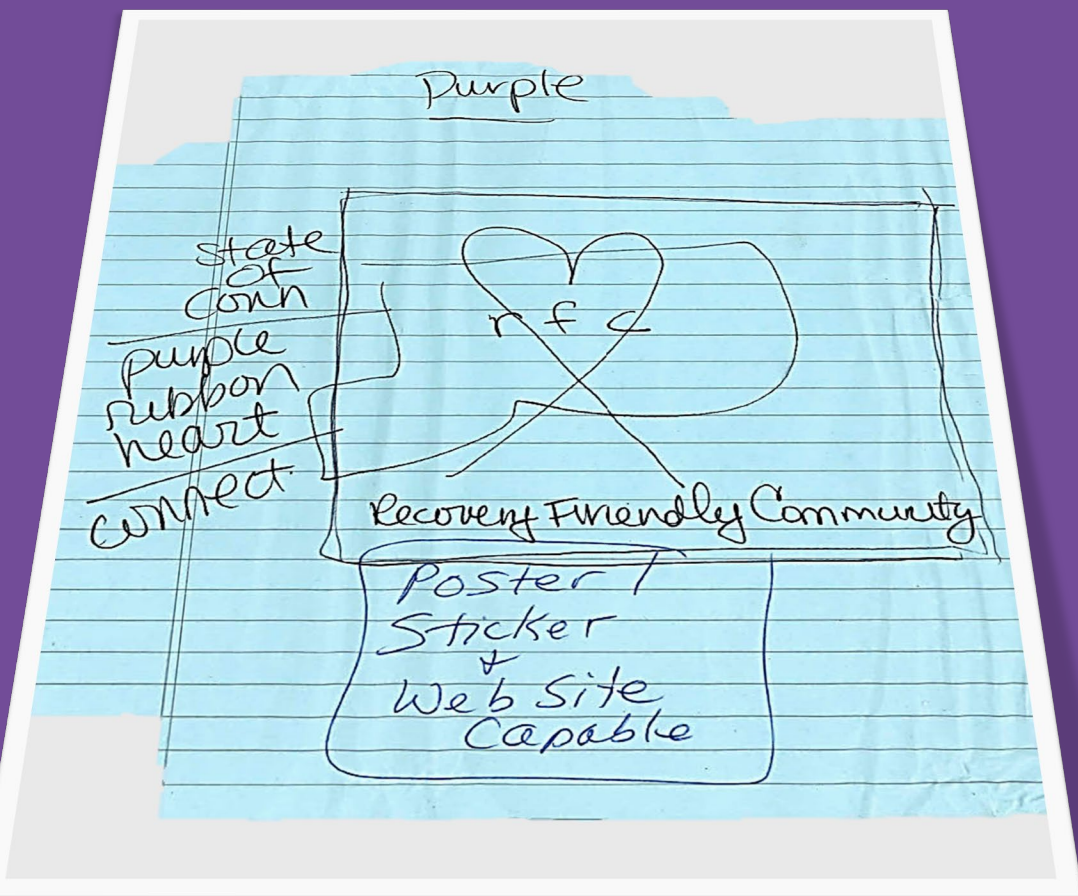 Purple
state
of
Conn
purple
ribbon
heart
connect
r f c
Recovery Friendly Community
Poster /
Sticker
+
Web Site
Capable